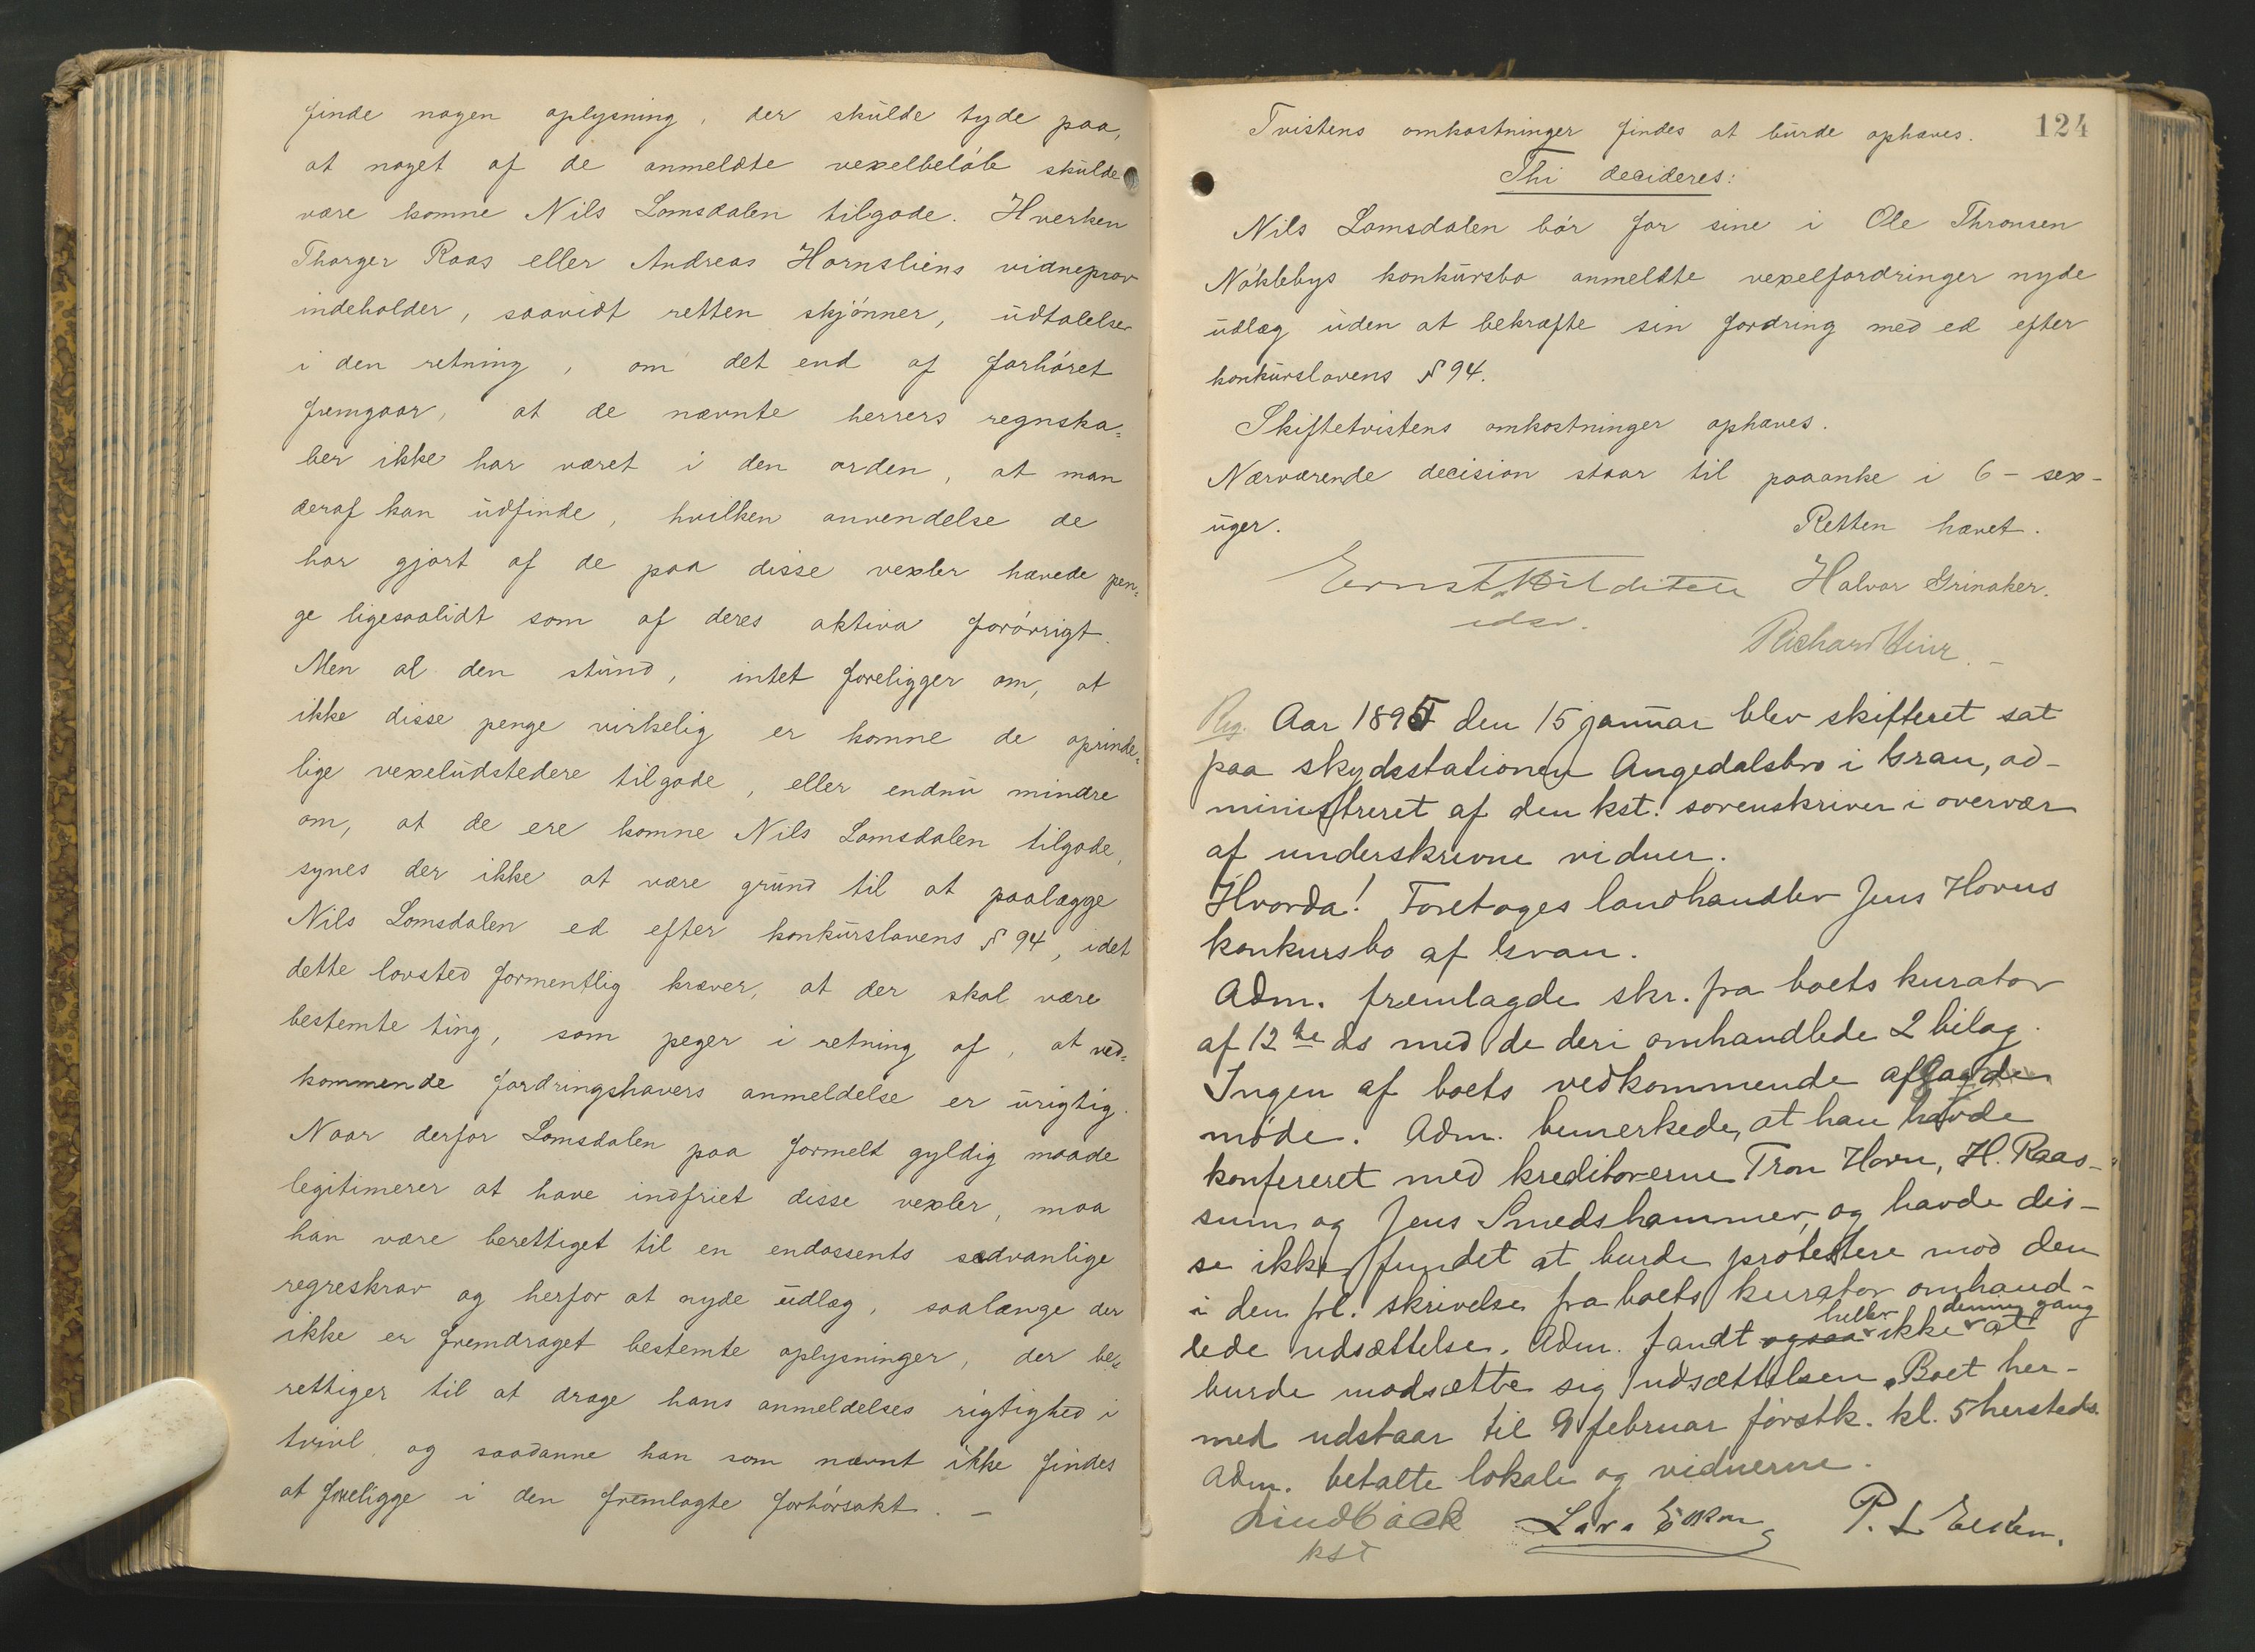 finde nogen oplysning, der skulde tyde paa,
at noget af de anmeldte vexelbeløb skulde
være komne Nils Lomsdalen tilgode. Hverken
Thorger Raas eller Andreas Hornsliens vidneprov
indeholder, saavidt retten skjønner, udtalelser
i den retning, om det end af forhøret
fremgaar, at de nævnte herrers regnska=
ber ikke har været i den orden, at man
deraf kan udfinde, hvilken anvendelse de
har gjort af de paa disse vexler hævede pen=
ge ligesaalidt som af deres aktiva forøvrigt.
Men al den stund, intet foreligger om, at
ikke disse penge virkelig er komne de oprinde=
lige vexeludstedere tilgode, eller endnu mindre
om, at de ere komne Nils Lomsdalen tilgode,
synes der ikke at være grund til at paalægge
Nils Lomsdalen ed efter konkurslovens § 94, idet
dette lovsted formentlig kræver, at der skal være
bestemte ting, som peger i retning af, at ved=
kommende fordringshavers anmeldelse er urigtig.
Naar derfor Lomsdalen paa formelt gyldig maade
legitimerer at have indfriet disse vexler, maa
han være berettiget til en endossents sædvanlige
regreskrav og herfor at nyde udlæg, saalænge der
ikke er fremdraget bestemte oplysninger, der be=
rettiger til at drage hans anmeldelses rigtighed i
tvivl og saadanne kan som nævnt ikke findes
at foreligge i den fremlagte forhørsakt. –
124
Tvistens omkostninger findes at burde ophæves.
Thi decideres:
Nils Lomsdalen bør for sine i Ole Thronsen
Nøklebys konkursbo anmeldte vexelfordringer nyde
udlæg uden at bekræfte sin fordring med ed efter
konkurslovens § 94.
Skiftetvistens omkostninger ophæves.
Nærværende decision staar til paaanke i 6 – sex –
uger. Retten hævet.
Ernst Halvor Grinaker.
Richard
Reg. Aar 1895 den 15 januar blev skifteret sat
paa skydsstationen Augedalsbro i Gran, ad-
ministreret af den kst. sorenskriver i overvær
af underskrevne vidner.
Hvorda! Foretoges landhandler Jens Hovns
konkursbo af Gran.
Adm. fremlagde skr. fra boets kurator
af 12te ds med de deri omhandlede 2 bilag.
Ingen af boets vedkommende afgav
møde. Adm. bemerkede, at han havde
konfereret med kreditorerne Tron Hovn, H. Raas-
sum og Jens Smedshammer, og havde dis-
se ikke fundet at burde protestere mod den
i den frl. skrivelse fra boets kurator omhand-
lede udsættelse. Adm. fandt ogsaa heller ikke denne gang at
burde modsætte sig udsættelsen. Boet her-
med udstaar til 9 februar førstk. kl. 5 hersteds.
Adm. betalte lokale og vidnerne.
Lindbäck Lars P. L
kst